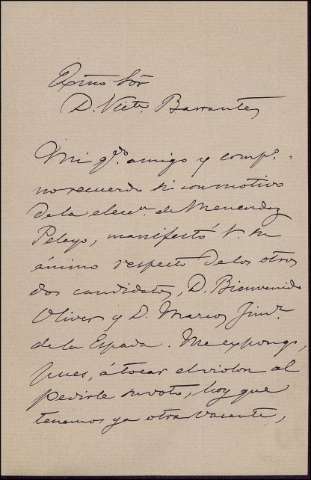 Exmo Sor
D. Victe Barrantes
Mi qdo amigo y compo.
no recuerdo si con motivo
de la elecn. de Menendez
Pelayo, manifestó V. su
ánimo respecto de los otros
dos candidatos, D. Bienvenido
Oliver y D. Marcos Jimz.
de la Espada. Me expongo,
pues, á tocar el violon al
pedirle su voto, hoy que
tenemos ya otra vacante,